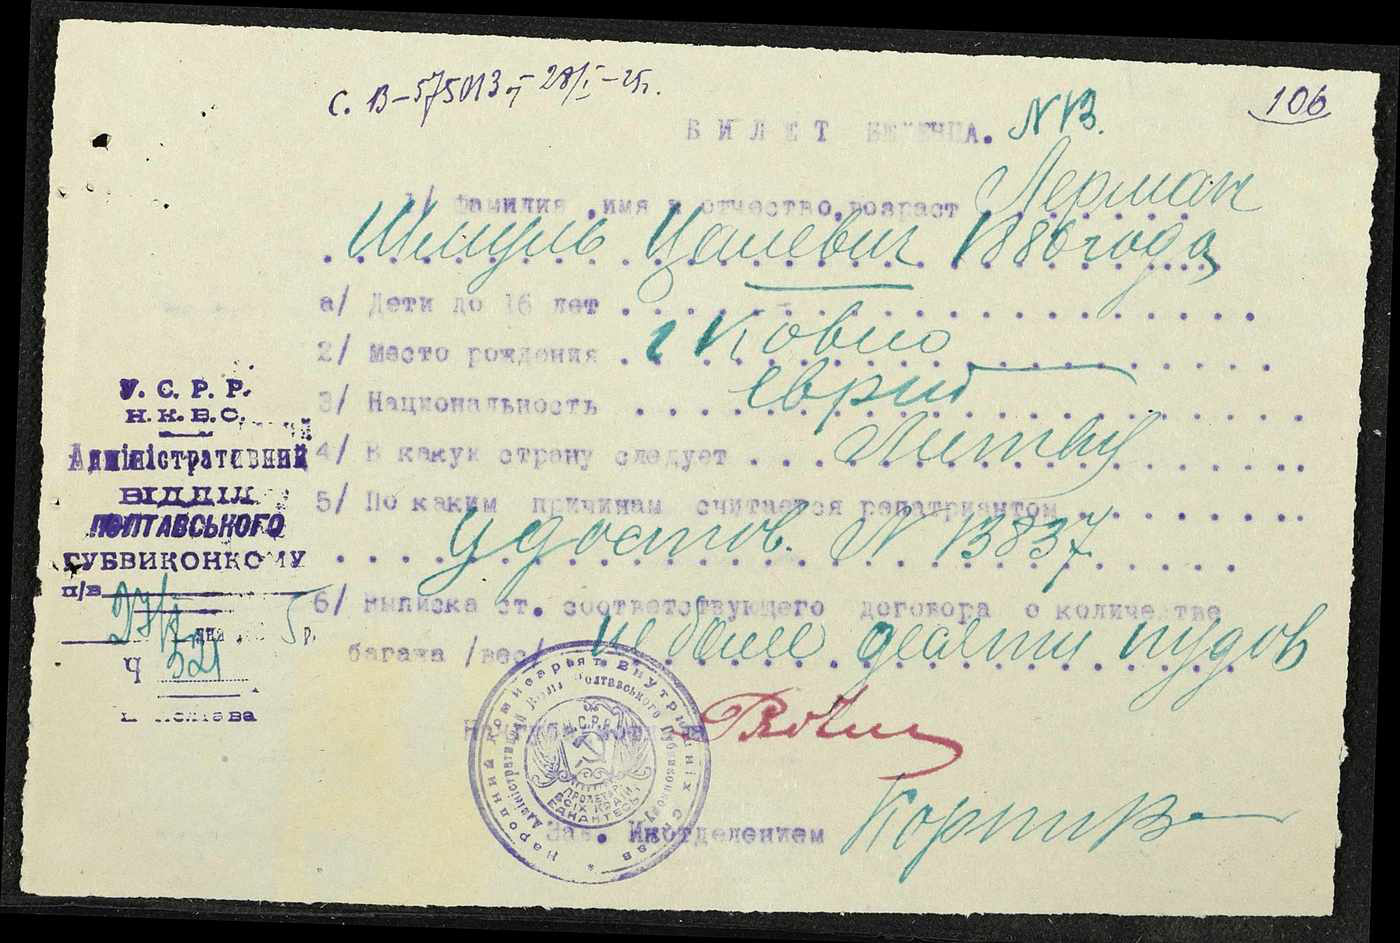 С. В-575013 от 28/I-25г.
106
БИЛЕТ БЕЖЕНЦА. N 13.
1/ Фамилия, имя и отчество, возраст Лерман
Шмуль Цалевич 1886 года
а/ Дети до 16 лет
2/ Место рождения г Ковно
3/ Национальность еврей
4/ В какую страну следует Литву
5/ По каким причинам считается репатриантом
удостов. N 13837
6/ Выписка ст. соответствующего договора о количестве
багажа /вес/ не более десяти пудов
У. С. Р. Р.
Н. К. В. С.
Адміністративний
ВІДДІЛ
ПОЛТАВСЬКОГО
ГУБВИКОНКОМУ
п/в
27/I дня 5 р.
Ч 521
м. Полтава
Народний комісаріят внутрішніх справ
Адміністративний Відділ Полтавського Губвиконкому
У.С.Р.Р.
ПРОЛЕТАРІ
ВСІХ КРАЇН
ЄДНАЙТЕСЬ!
Зав. Иноотделением